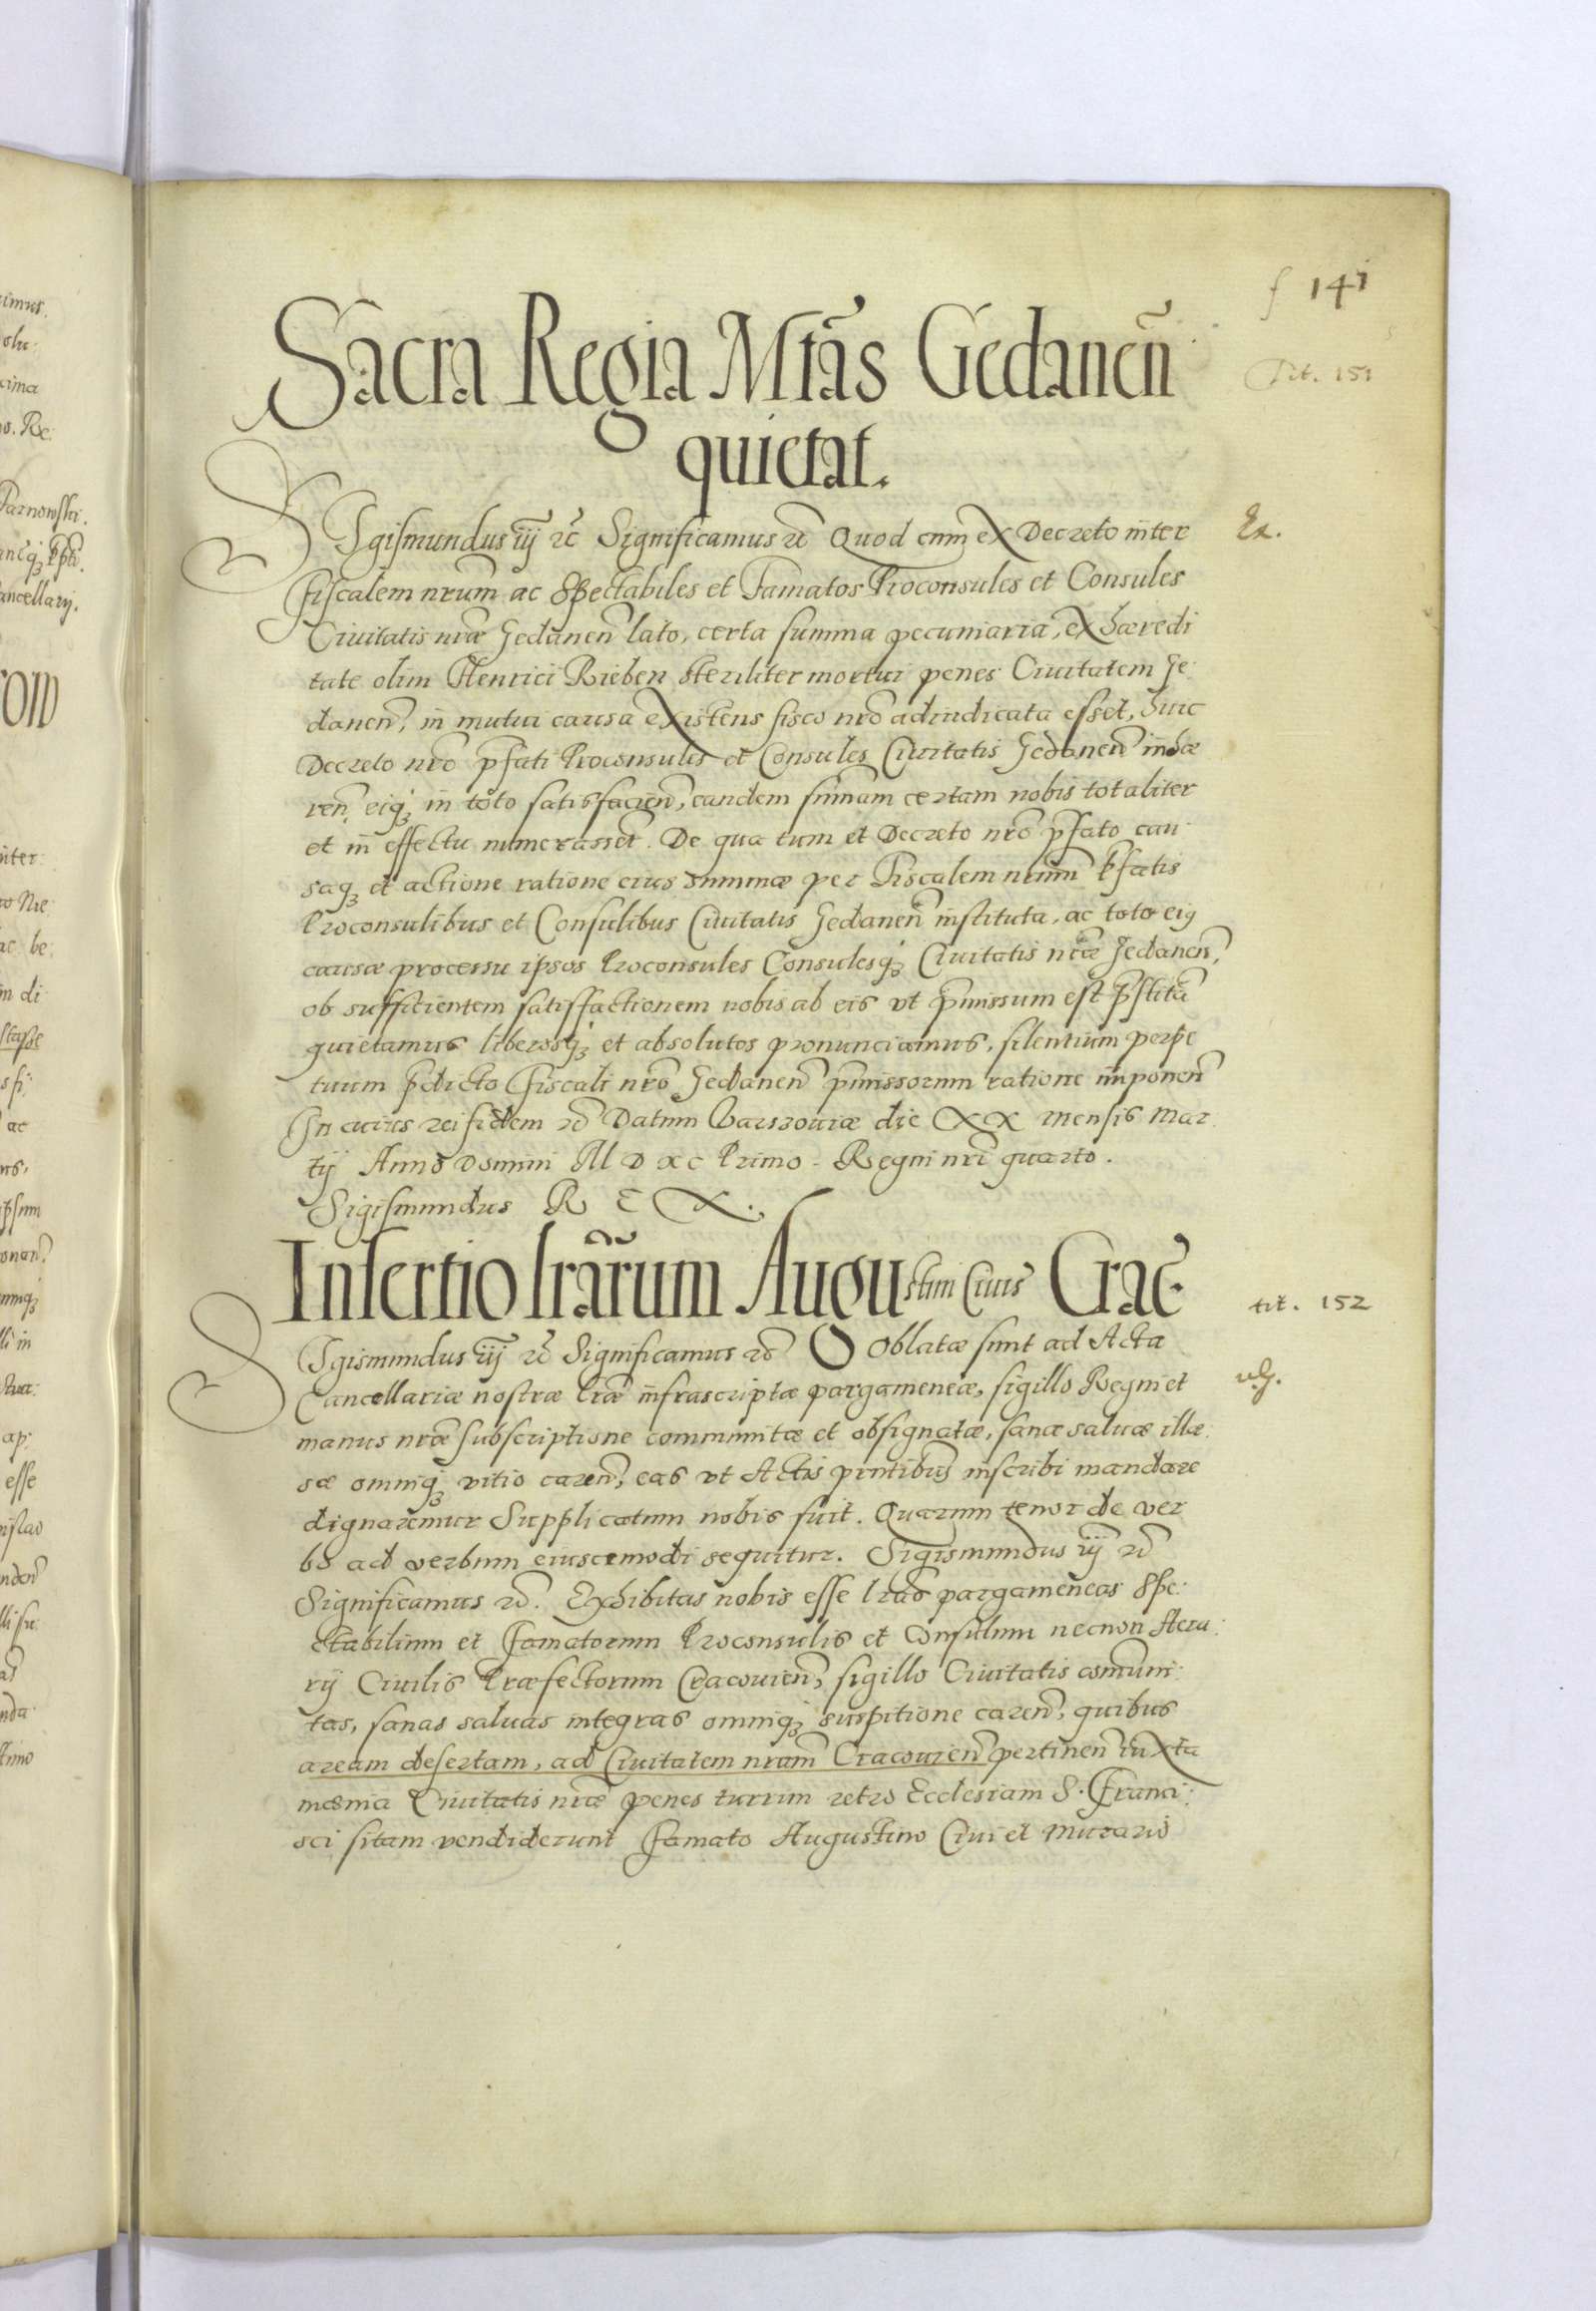 f 141
Sacra Regia Mtãs Gedaneñ
Tit. 151
quietat.
SIgismundus iij ꝛc̃ Significamus ꝛc̃ Quod cum ex Decreto inter
Ex.
Fiscalem nrum̃ ac Spectabiles et Famatos Proconsules et Consules
Ciuitatis nræ̃ Gedaneñ lato, certa summa pecuniaria, ex hæredi
tate olim Henrici Rieben steriliter mortui penes Ciuitatem Ge:
daneñ, in mutui causa existens fisco nrõ adiudicata esset, huic
Decreto nrõ p̃fati Proconsules et Consules Ciuitatis Gedaneñ inhæ
reñ, eiq́ꝫ in toto satisfacieñ, eandem sum̃am certam nobis totaliter
et in effectu numerasseñt. De qua tum et Decreto nrõ p̃fato cau:
saqꝫ et actione ratione eius summæ per Fiscalem nrum̃ p̃fatis
Proconsulibus et Consulibus Ciuitatis Gedaneñ instituta, ac toto eiꝰ
causæ processu ipsos Proconsules Consulesq́ꝫ Ciuitatis nræ̃ Gedaneñ,
ob sufficientem satisfactionem nobis ab eis vt p̃missum est p̃stitã
quietamus liberosq́ꝫ et absolutos pronunciamus, silentium perpe
tuum p̃dicto Fiscali nrõ Gedaneñ p̃missorum ratione imponeñ
In cuius rei fidem ꝛc̃ Datum Varsouiæ die XX mensis Mar
tij Anno Domini M D XC Primo. Regni nrĩ quarto.
Sigismundus R E X.
Insertio lrãrum Augustini Ciuis Crac̃.
tit. 152
SIgismundus iij ꝛc̃ Significamus ꝛc̃ Q Oblatæ sunt ad Acta
Cancellariæ nostræ lræ̃ infrascriptæ pargameneæ, sigillo Regni et
manus nræ̃ subscriptione communitæ et obsignatæ, sanæ saluæ illæ:
sæ omniq́ꝫ vitio careñ, eas vt Actis pñtibus inscribi mandare
dignaremur Supplicatum nobis fuit. Quarum tenor de ver
bo ad verbum eiuscemodi sequitur. Sigismundus iij ꝛc̃
Significamus ꝛc̃. Exhibitas nobis esse lrãs pargameneas Spe:
ctabilium et Famatorum Proconsulis et Consulum necnon Aera:
rij Ciuilis Præfectorum Cracouieñ, sigillo Ciuitatis com̃uni:
tas, sanas saluas integras omniq́ꝫ suspitione careñ, quibus
aream desertam, ad Ciuitatem nram̃ Cracouieñ pertineñ iuxta
mœnia Ciuitatis nræ̃ penes turrim retro Ecclesiam S. Franci:
sci sitam vendiderunt Famato Augustino Ciui et Murario